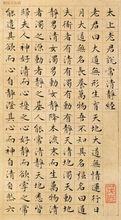 太上老君說常清靜經
老君曰大道無形生育天地大道無情運行
日月大道無名長養萬物吾不知其名強名曰道
夫道者有清有濁有動有靜天清地濁天動地
靜男清女濁男動女靜降本流末而生萬物清
者濁之源動者靜之基人能常清靜天地悉皆
歸夫人神好清而心擾之人心好靜而欲牽之常
能遣其欲而心自靜澄其心而神自清自然六